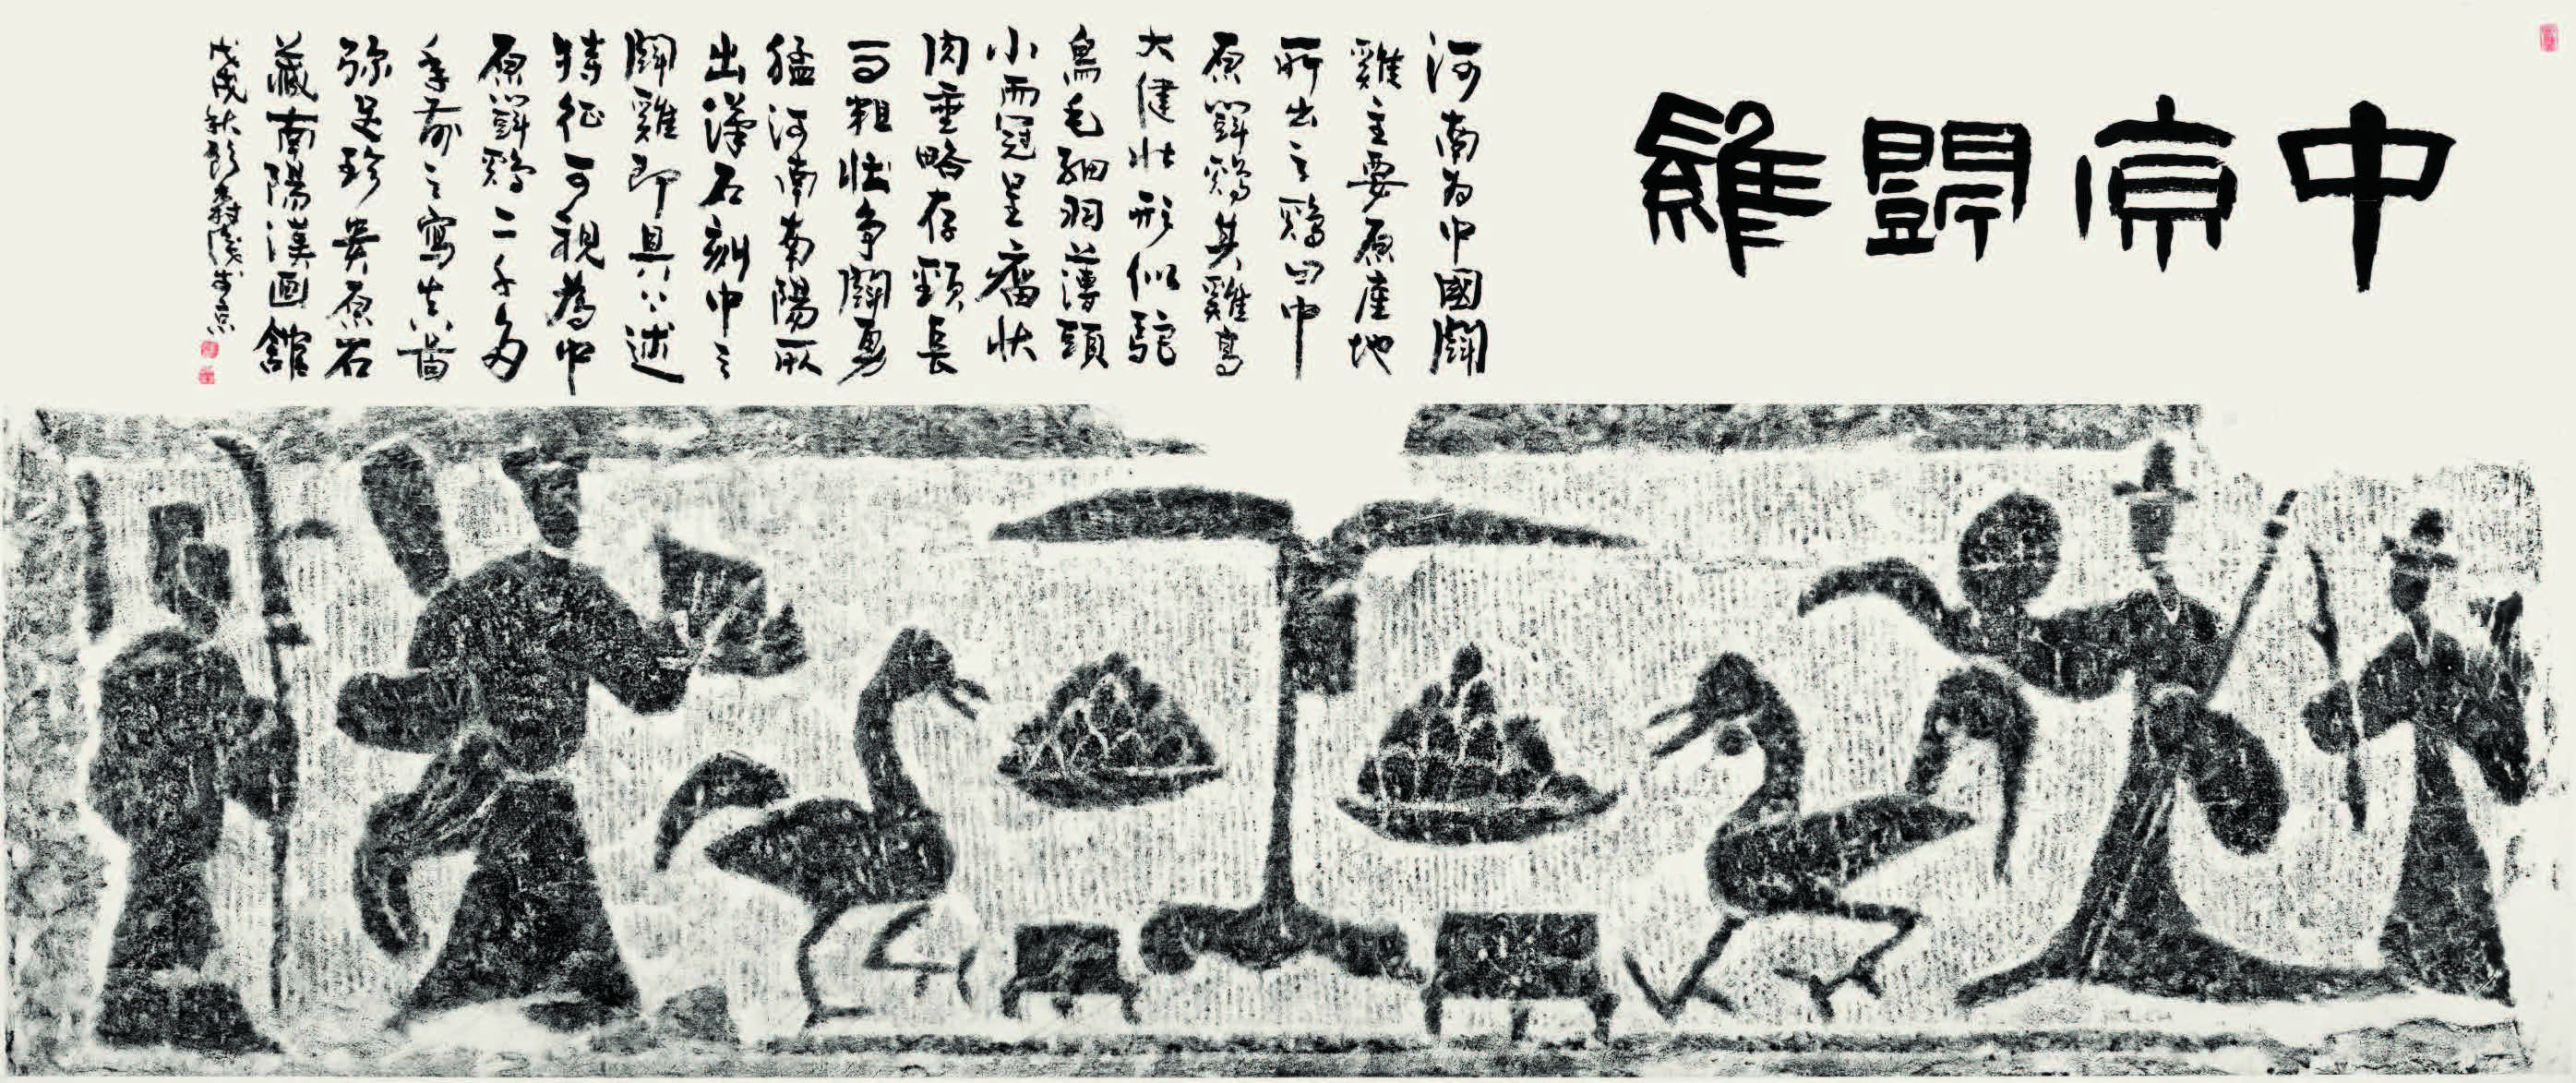 中原鬥雞
河南为中國鬭
雞主要原產地
所出之鷄曰中
原鬥鷄其雞高
大健壮形似鴕
鳥毛細羽薄頭
小而冠呈瘤状
肉垂略存頸長
而粗壮争鬭勇
猛河南南陽所
出漢石刻中之
鬭雞即具以上述
特征可視為中
原鬥鷄二千多
年前之寫真啚
弥足珍貴原石
藏南陽漢画館
戊戌秋